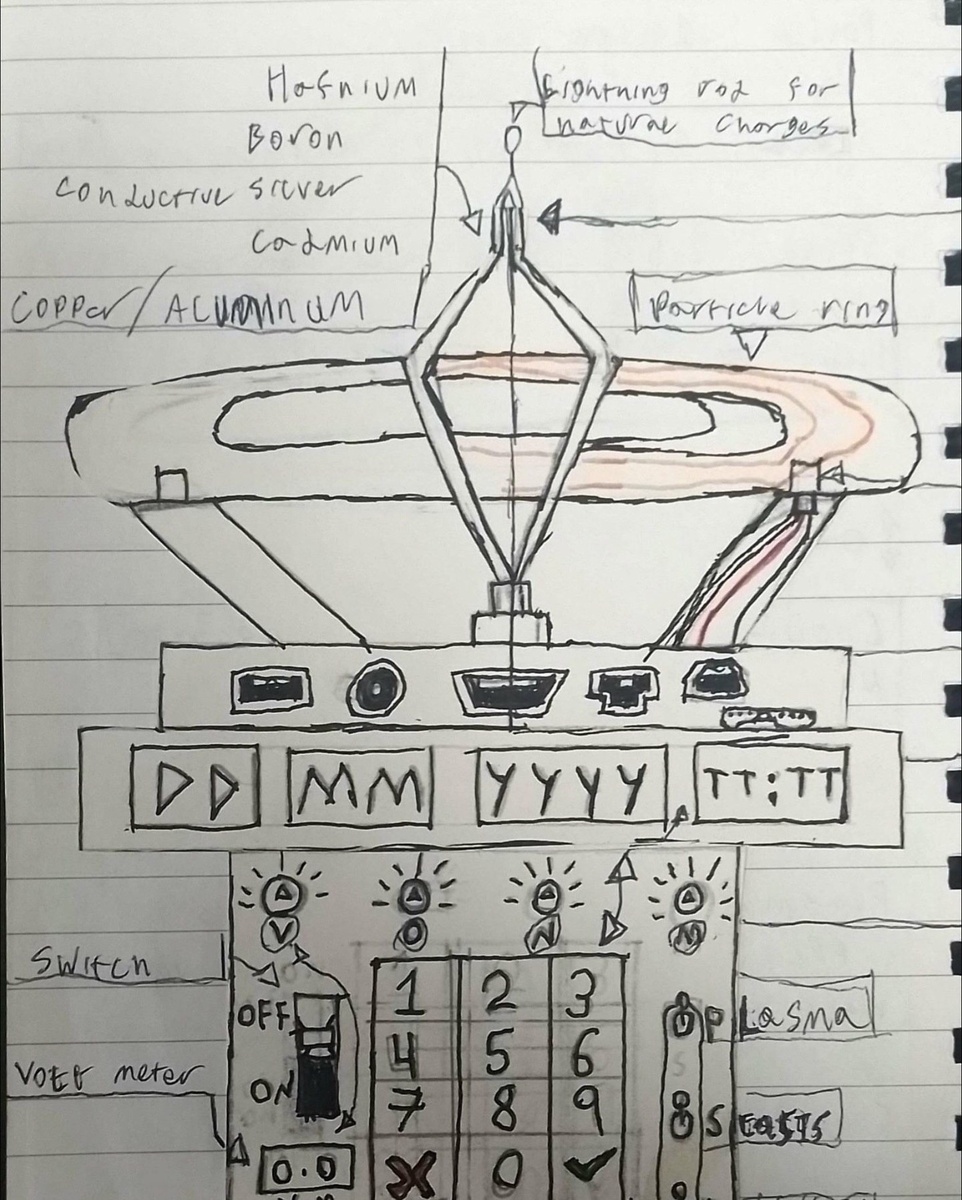 Hafnium
Lightning rod for
natural charges
Boron
conductive silver
Cadmium
Copper/ALUMINUM
Particle ring
DD MM YYYY TT:TT
V O N M
Switch
OFF
ON
1 2 3
4 5 6
7 8 9
0
Plasma
Volt meter
0.0